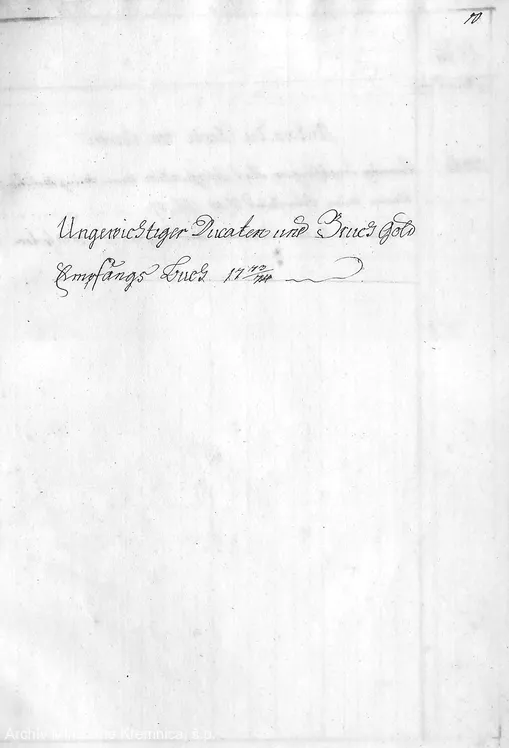 10
Ungewichtiger Ducaten und Bruch Gold
Empfangs Buch 1773/74
Archív Mincovňa Kremnica, š.p.